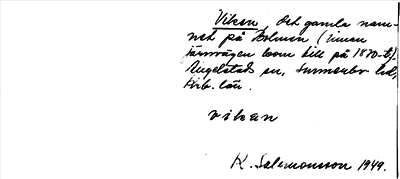 Viken, det gamla nam-
net på Bolmen (innan
järnvägen kom till på 1870-t.).
Angelstads sn, Sunnerbo hd,
Krb. län.
vikan
K. Salomonsson 1949.